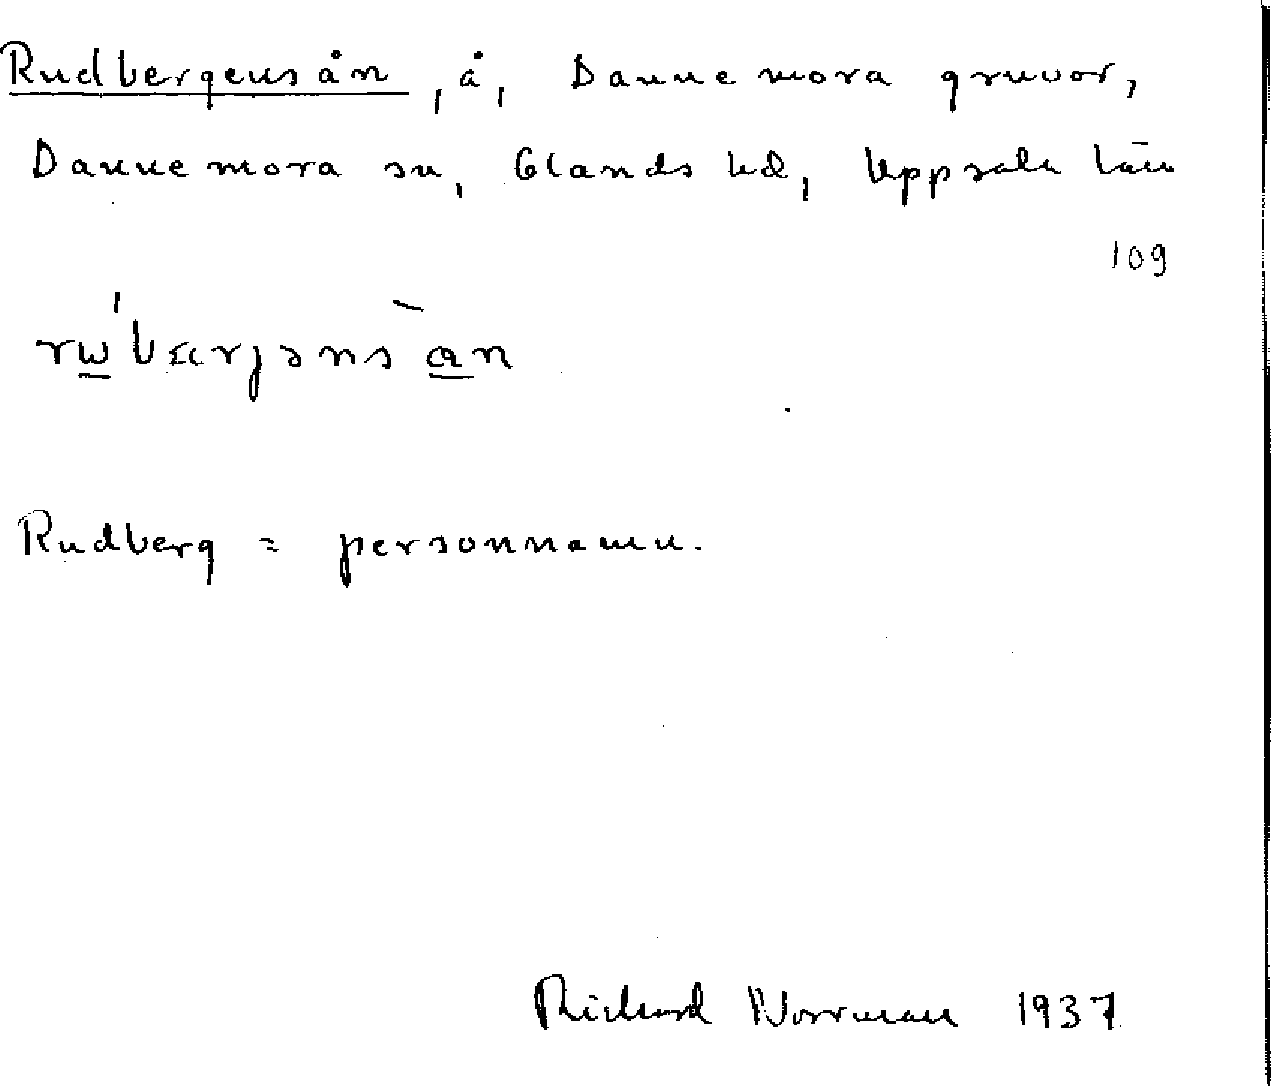 Rudbergensån, å, Dannemora gruvor,
Dannemora sn, Olands hd, Uppsala län
109
Rudberg = personnamn.
Richard Norrman 1937